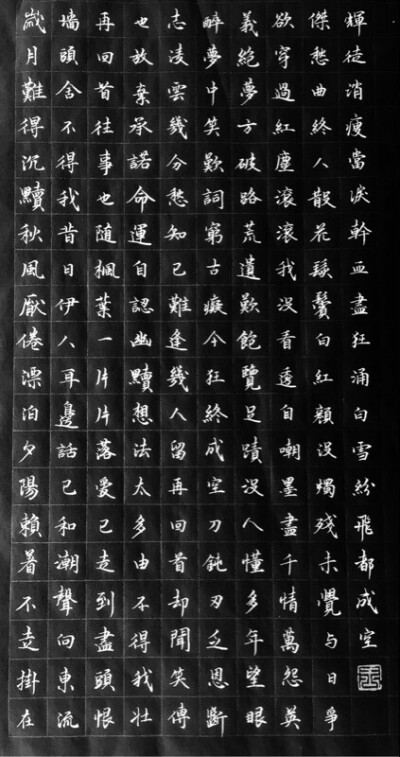 歲月難得沉黷秋風厭倦漂泊夕陽賴着不走掛在
墻頭舍不得我昔日伊人耳邊話已和潮聲向東流
再回首往事也隨楓葉一片片落愛已走到盡頭恨
也放棄承諾命運自認幽黷想法太多由不得我壯
志凌雲幾分愁知己難逢幾人留再回首却聞笑傳
醉夢中笑歎詞窮古癡今狂終成空刀鈍刃乏恩斷
義絕夢方破路荒遺歎飽覽足蹟沒人懂多年望眼
欲穿過紅塵滾滾我沒看透自嘲墨盡千情萬怨英
傑愁曲終人散花鬚鬢白紅顏沒燭殘未覺与日爭
輝徒消瘦當淚幹血盡狂涌白雪紛飛都成空